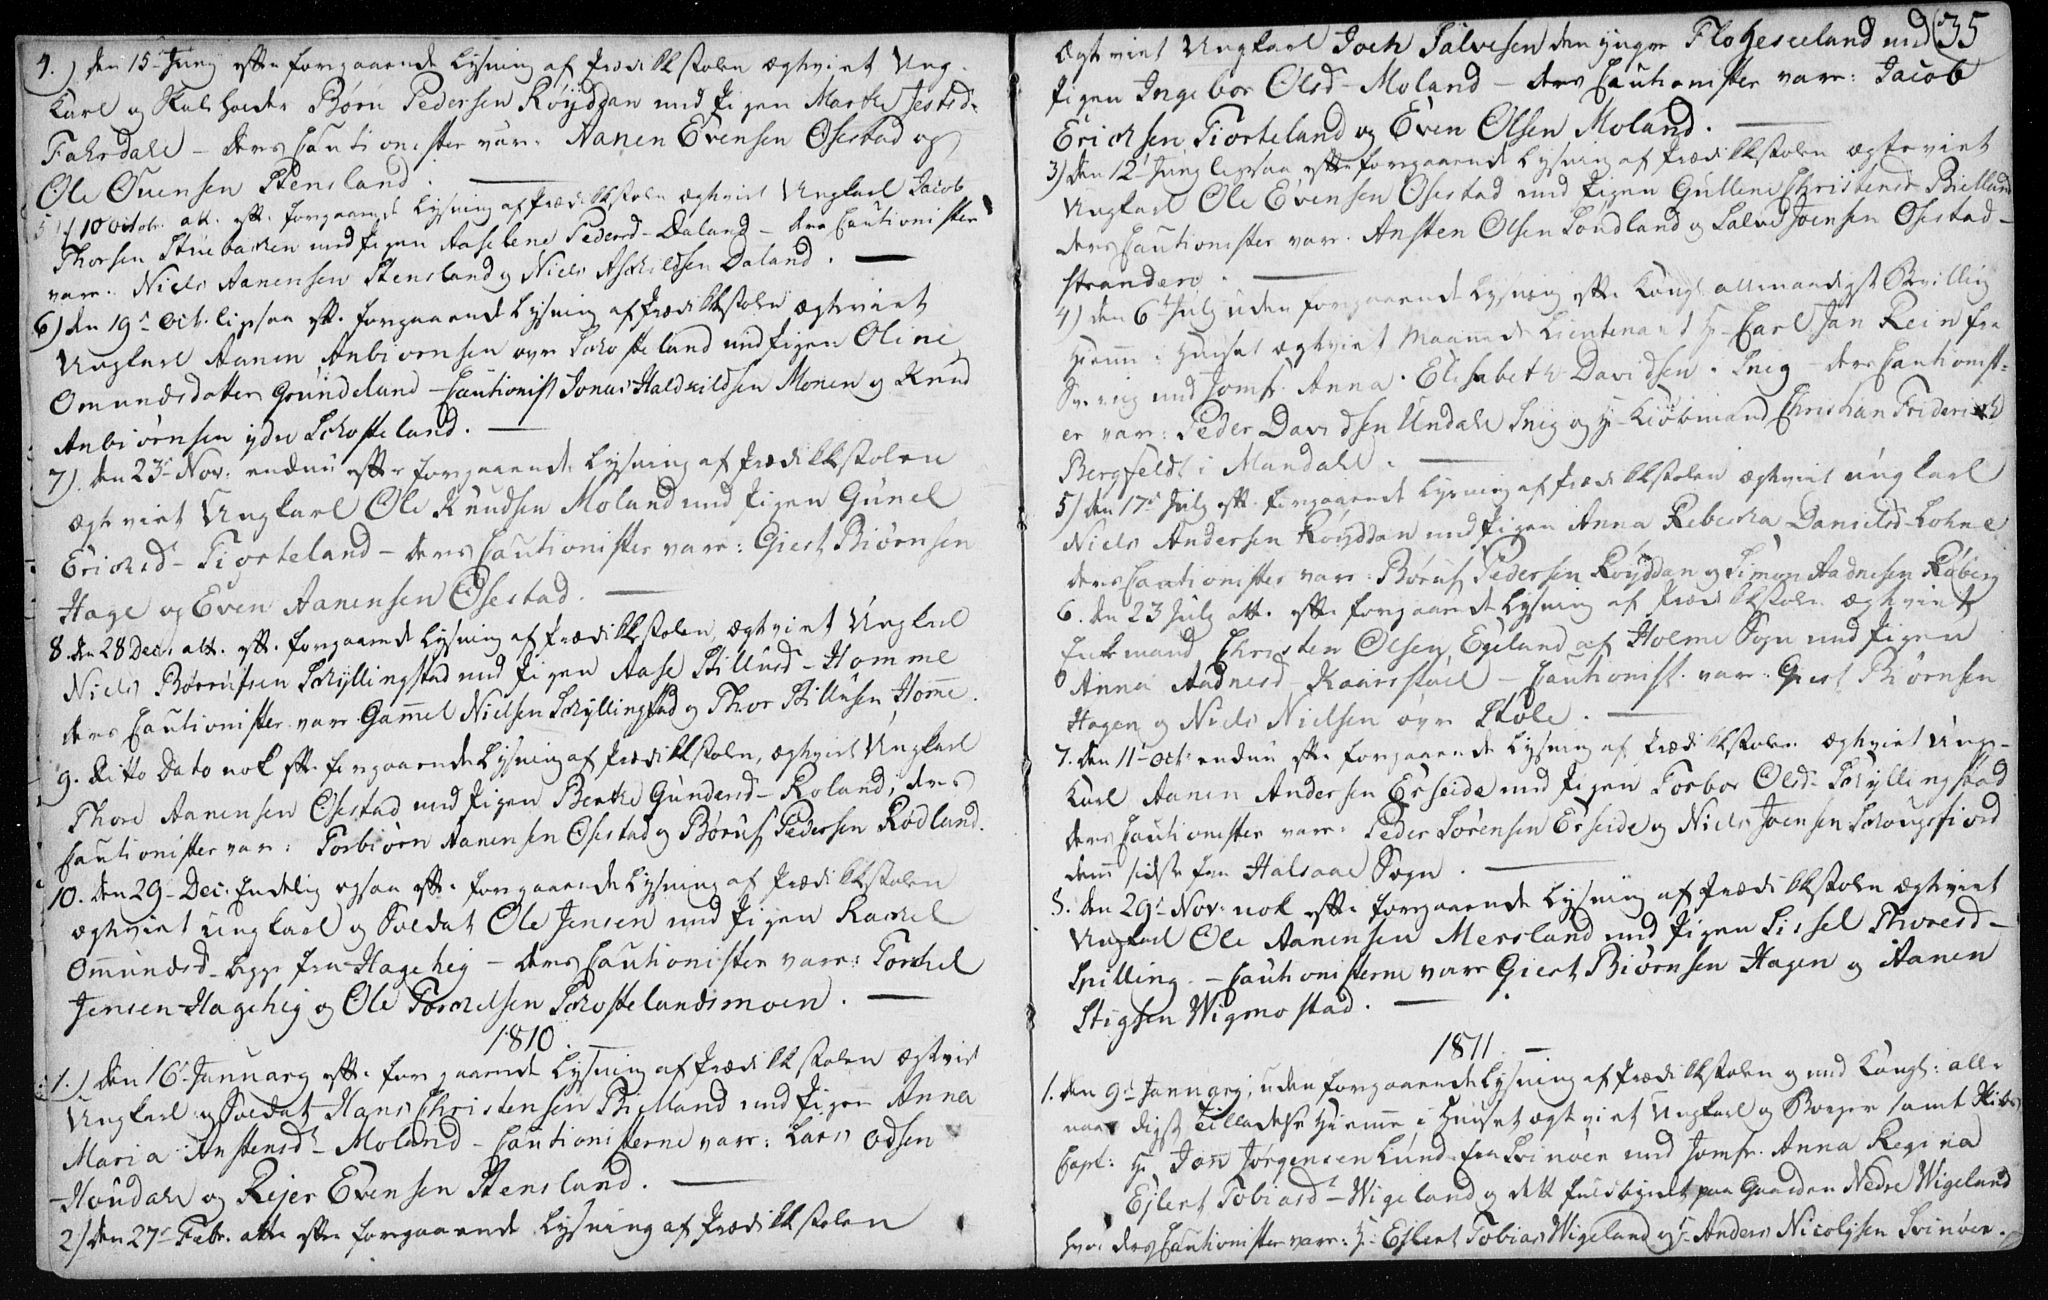 4.) den 15de Juny efter forgaaende Lysning af Prædikkstolen ægteviet Ung-
karl og Skoleholder Børu Pedersen Röyddan med Pigen Marthe Jestsd-
Fahrdahl - deres Cautionister var: Aanen Evensen Ösestad og
Ole Evensen Stensland. —
5) 10 October att. eft. forgaaende Lysning af Prædikkstolen ægteviet Ungkarl Jacob
Thorsen Struebacken med Pigen Aaselene Pedersd- Daland - dere Cautionister
varr: Niels Aanensen Stensland og Niels Askildsen Daland. —
6) den 19de Oct. ligesaa eft. forgaaende Lysning af Prædikkstolen ægteviet
Ungkarl Aanen Anbiørnsen øvre Schofteland med Pigen Oline
Omundsdatter Grundeland - Cautionist Jonas Haldvildsen Monen og Knud
Anbiørnsen ydre Schofteland. —
7). den 23de Nov. endnu efter forgaaende Lysning af Prædikkstolen
ægteviet Ungkarl Ole Knudsen Moland med Pigen Gunel
Ericksd- Tiorteland - deres Cautionister varr: Giert Biørnsen
Hage og Even Aanensen Ösestad. —
8. den 28 Dec. att. eft. forgaaende Lysning af Prædikkstolen, ægteviet Ungkarl
Niels Børrufsen Schyllingstad med Pigen Aase Stillufsd- Homme
deres Cautionister varr Gammel Nielsen Schyllingstad og Thor Stillufsen Homme.
9. Ditto Dato nok eft. forgaaende Lysning af Prædikkstolen, ægteviet Ungkarl
Thore Aanensen Ösestad med Pigen Berthe Gundersd- Roland, deres
Cautionister var: Torbiörn Aanensen Ösestad og Børuf Pedersen Rödland.
10. den 29- Dec. Endelig ogsaa eft. forgaaende Lysning af Prædikkstolen
ægteviet ungkarl og Soldat Ole Jensen med Pigen Rachel
Omundsd- begge fra Hagehej - deres Cautionister varr: Torkel
Jensen Hagehej og Ole Torkelsen Schoftelandsmoen. —
1810.
1.) Den 16de January eft. forgaaende Lysning af Prædikkstolen ægteviet
Ungkarl og Soldat Hans Christensen Bielland med Pigen Anna
Maria Anstensd- Moland - Cautionisterne varr: Lars Odsen
Houdahl og Rejer Evensen Stensland. —
2) den 27de Febr. atter eft. forgaaende Lysning af Prædikkstolen
35
ægteviet Ungkarl Joch Salvesen den yngre Flogeseeland med
Pigen Ingebor Olsd- Moland - deres Cautionister varr: Jacob
Ericksen Tiorteland og Even Olsen Moland. —
3) den 12te Juny ligesaa efter forgaaende Lysning af Prædikkstolen ægteviet
Ungkarl Ole Evensen Ösestad med Pigen Gulline Christensd- Bielland
deres Cautionister varr. Ansten Olsen Londland og Salve Joensen Ösestad-
stranden. —
4) den 6te July uden forgaaende Lysning efter Kongl. allernaadigst Bevilling
hiemme i Huuset ægteviet Maaneds Lieutenant Hr. Carl Jan Rein fra
Sverrig med Jomfr. Anna Elisabeth Davidsen. Snig - deres Cautionist-
er varr: Peder Davidsen Undahl Snig og Hr. Kiöbmand Christian Friderick
Bergfeldt i Mandahl. —
5) den 17de July eft. forgaaende Lysning af Prædikkstolen ægteviet ungkarl
Niels Andersen Röyddan med Pigen Anna Rebecka Danielsd- Lohne
deres Cautionister varr: Børuf Pedersen Röyddan og Simon Aadnesen Röberg
6. den 23 July att. efter forgaaende Lysning af Prædikkstolen ægteviet
Enkemand Christen Olsen Egeland af Holme Sogn med Pigen
Anna Aadnesd- Kaarstoel - Cautionist. var. Giert Biørnsen
Hagen og Niels Nielsen øvre Stole. —
7. den 11- Oct. endnu efter forgaaende Lysning af Prædikkstolen ægteviet Ung-
karl Aanen Andersen Erseide med Pigen Torbor Olsd- Schyllingstad
deres Cautionister varr: Peder Sørensen Erseide og Niels Joensen Schougsfiord
denne sidste fra Halsaae Sogn. —
8. den 29de Nov. nok efter forgaaende Lysning af Prædikkstolen ægteviet
Ungkarl Ole Aanensen Mersland med Pigen Sissel Thoresd-
Spilling - Cautionisterne varr Giert Biørnsen Hagen og Aanen
Stigsen Wigmostad. —
1811. —
1. den 9de January, uden forgaaende Lysning af Prædikkstolen og med Kongl: aller
naadigst Tilladelse hiemme i Huuset ægteviet Ungkarl og Borger samt
Capt: Hr. Jan Jørgensen Lund fra Svinöer med Jomfr. Anna Regina
Ejlert Tobiasd- Wigeland og dette fuldbyrdet paa Gaarden Nedre Wigeland
hvor deres Cautionister varr: Hr. Ejlert Tobias Wigeland og Hr. Anders Nicolysen Svinöer.